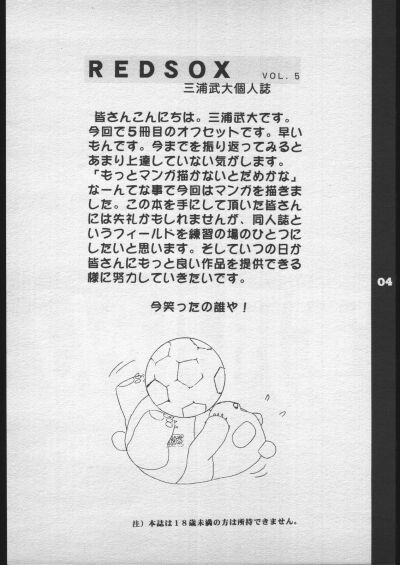 REDSOX VOL. 5
三浦武大個人誌
皆さんこんにちは。三浦武大です。
今回で５冊目のオフセットです。早い
もんです。今までを振り返ってみると
あまり上達していない気がします。
「もっとマンガ描かないとだめかな」
なーんてな事で今回はマンガを描きま
した。この本を手にして頂いた皆さん
には失礼かもしれませんが、同人誌と
いうフィールドを練習の場のひとつに
したいと思います。そしていつの日か
皆さんにもっと良い作品を提供できる
様に努力していきたいです。
今笑ったの誰や！
04
注）本誌は１８歳未満の方は所持できません。